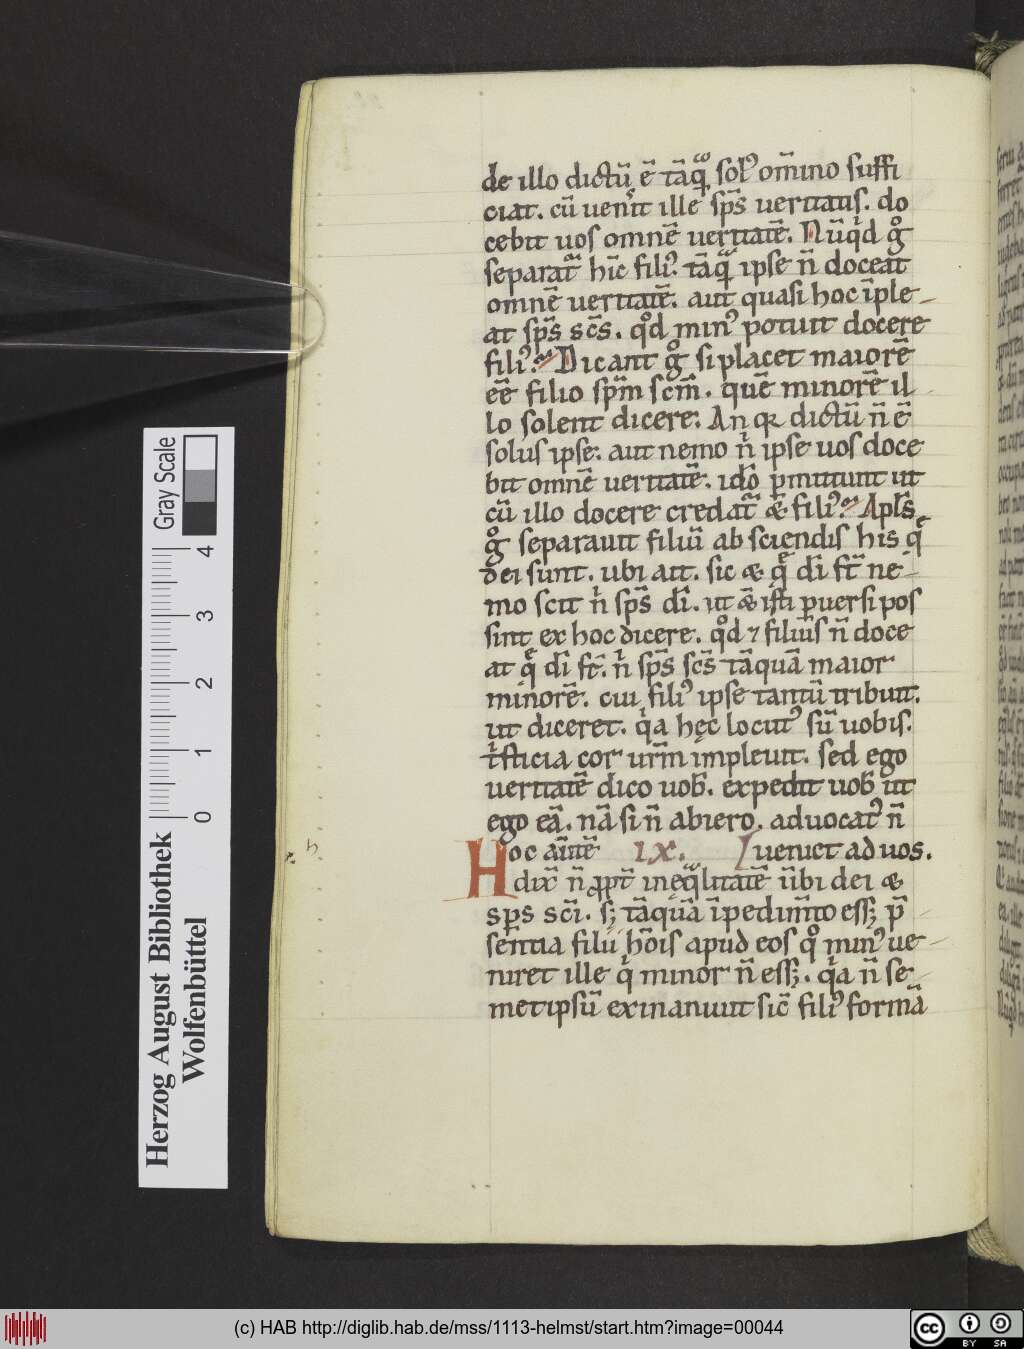 de illo dictū ē tāqͣ sol᷒ om̄ino suffi
ciat. cū uen̄it ille sp̄s ueritatis. do
cebit uos omnē ueritatē. Nūqͥd gͦ
separat̄ hīc fili᷒. tāqͣ ipse n̄ doceat
omnē ueritatē. aut quasi hoc īple-
at sp̄s sc̄s. qͦd min᷒ potuit docere
fili᷒? Dicant gͦ si placet maiorē
eē filio sp̄m scm̄. quē minorē il
lo solent dicere. An qꝛ dictū n̄ ē
solus ipse. aut nemo nͥ ipse uos doce
bit omnē ueritatē. idō ꝑmittunt ut
cū illo docere credat̄ & fili᷒? Apl̄s
gͦ separauit filiū ab sciendis his q̄
dei sunt. ubi ait. sic & q̄ dī st̄ ne-
mo scit nͥ sp̄s dī. ut & isti ꝑuersi pos
sint ex hoc dicere. qͦd ⁊ filiūs n̄ doce
at q̄ dī st̄. nͥ sp̄s sc̄s tāquā maior
minorē. cui fili᷒ ipse tantū tribuit.
ut diceret. qͥa hęc locut᷒ sū uobis.
tͥsticia cor urm̄ impleuit. sed ego
ueritatē dico uob̄. expedit uob̄ ut
ego eā. nā si n̄ abiero. aduocat᷒ n̄
Hoc aūtē IX. ueniet ad uos.
dix̄ n̄ ꝓpt̄ ineqͣlitatē ūbi dei &
sp̄s sc̄i. sꝫ tāquā īpedim̄to essꝫ p̄
sentia filii hōis apud eos qͦ min᷒ ue-
niret ille qͥ minor n̄ essꝫ. qͥa n̄ se-
metipsū exinaniuit sic̄ fili᷒ formā
h.
Herzog August Bibliothek
Wolfenbüttel
0 1 2 3 4
Gray Scale
(c) HAB http://diglib.hab.de/mss/1113-helmst/start.htm?image=00044
cc BY SA